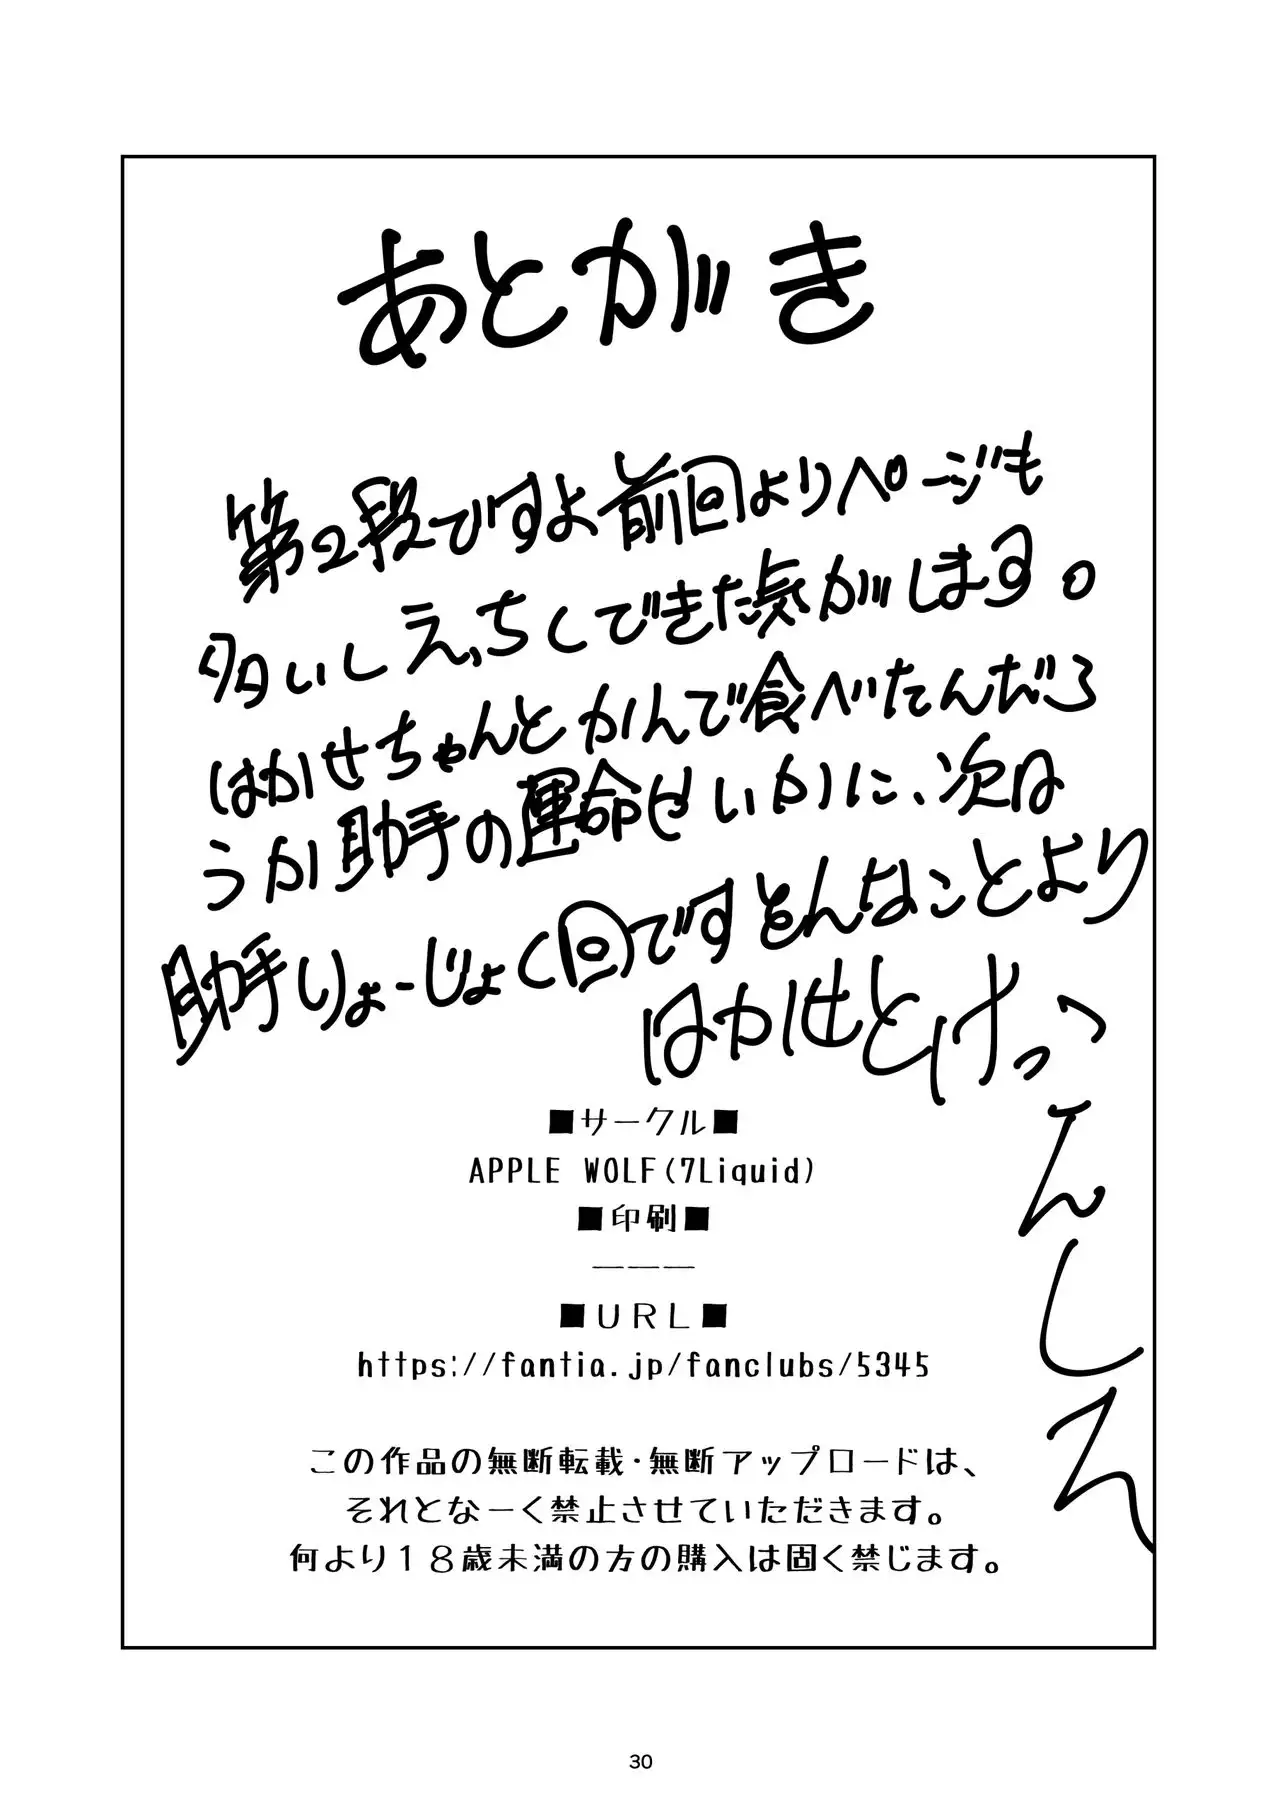 あとがき
第2段ですよ前回よりページも
多いしえっちくできた気がします。
はかせちゃんとかんで食べたんだろ
うか助手の運命はいかに、次は
助手りょーじょく回ですそんなことより
はかせとけっ
こんしろ
■サークル■
APPLE WOLF(7Liquid)
■印刷■
―――
■URL■
https://fantia.jp/fanclubs/5345
この作品の無断転載・無断アップロードは、
それとなーく禁止させていただきます。
何より１８歳未満の方の購入は固く禁じます。
30